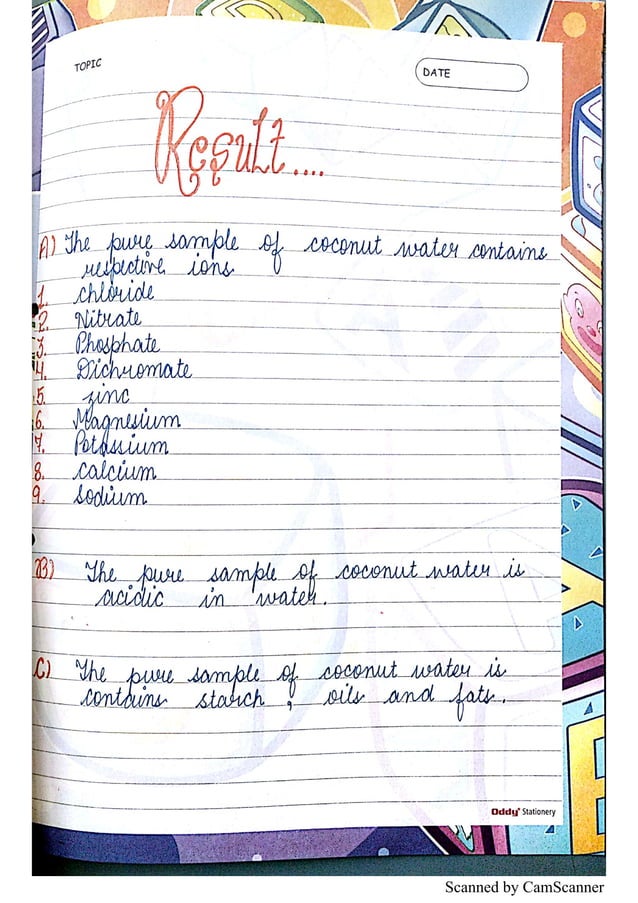 TOPIC
DATE
Result....
A) The pure sample of coconut water contains
respective ions
1. chloride
2. Nitrate
3. Phosphate
4. Dichromate
5. zinc
6. Magnesium
7. Potassium
8. calcium
9. Sodium
B) The pure sample of coconut water is
acidic in water.
C) The pure sample of coconut water is
contains starch, oils and fats.
Oddy Stationery
Scanned by CamScanner